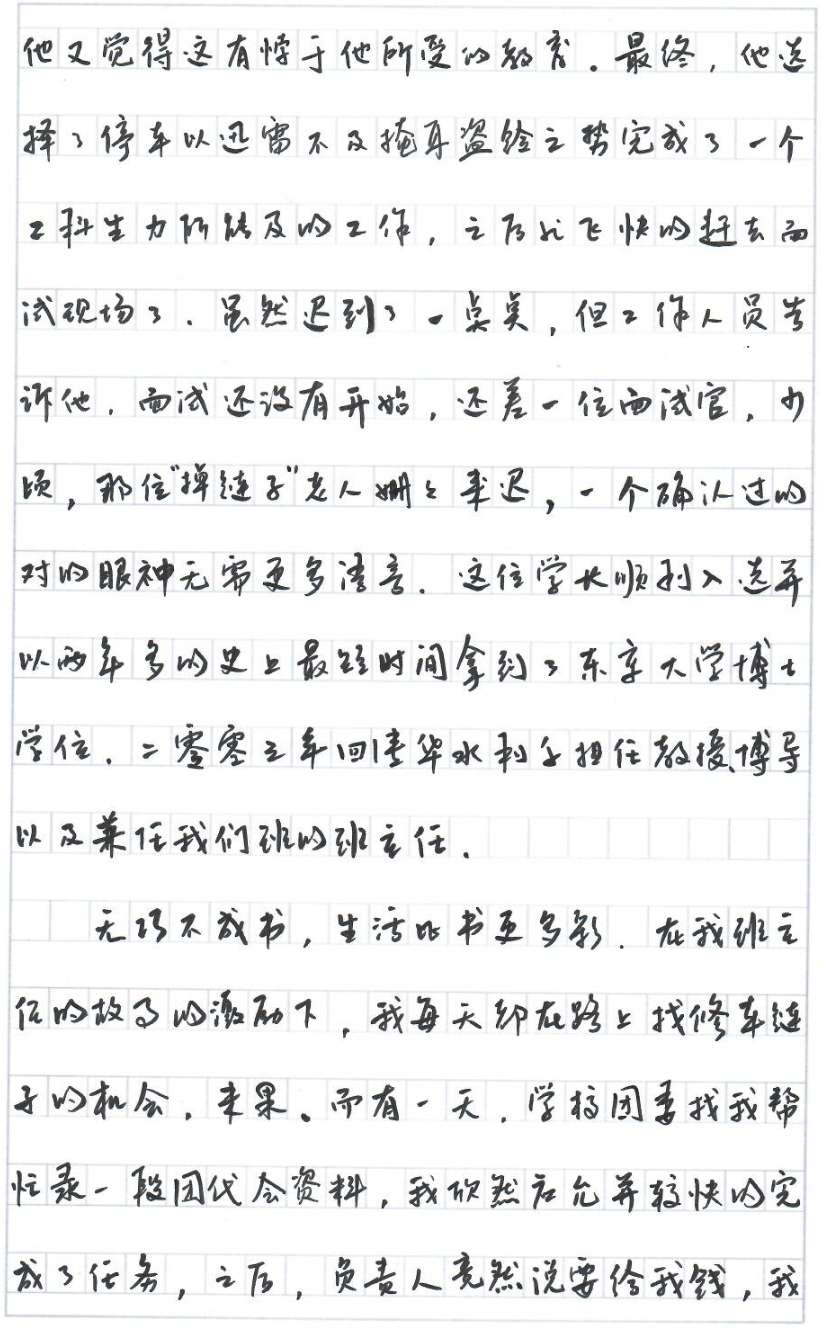 他又觉得这有悖于他所受的教育。最终，他选
择了停车以迅雷不及掩耳盗铃之势完成了一个
工科生力所能及的工作，之后就飞快的赶去面
试现场了．虽然迟到了一点点，但工作人员告
诉他，面试还没有开始，还差一位面试官，少
顷，那位"掉链子"老人姗々来迟，一个确认过的
对的眼神无需更多语言．这位学长顺利入选并
以两年多的史上最短时间拿到了东京大学博士
学位．二零零三年回清华水利系担任教授、博导
以及兼任我们班的班主任．
无巧不成书，生活比书更多彩．在我班主
任的故事的激励下，我每天都在路上找修车链
子的机会，未果。而有一天，学校团委找我帮
忙录一段团代会资料，我欣然应允并较快的完
成了任务，之后，负责人竟然说要给我钱，我